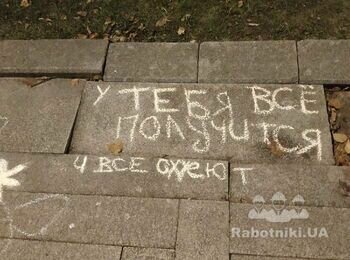 У ТЕБЯ ВСЁ
ПОЛУЧИТСЯ
И ВСЕ ОХУЕЮТ
Rabotniki.UA